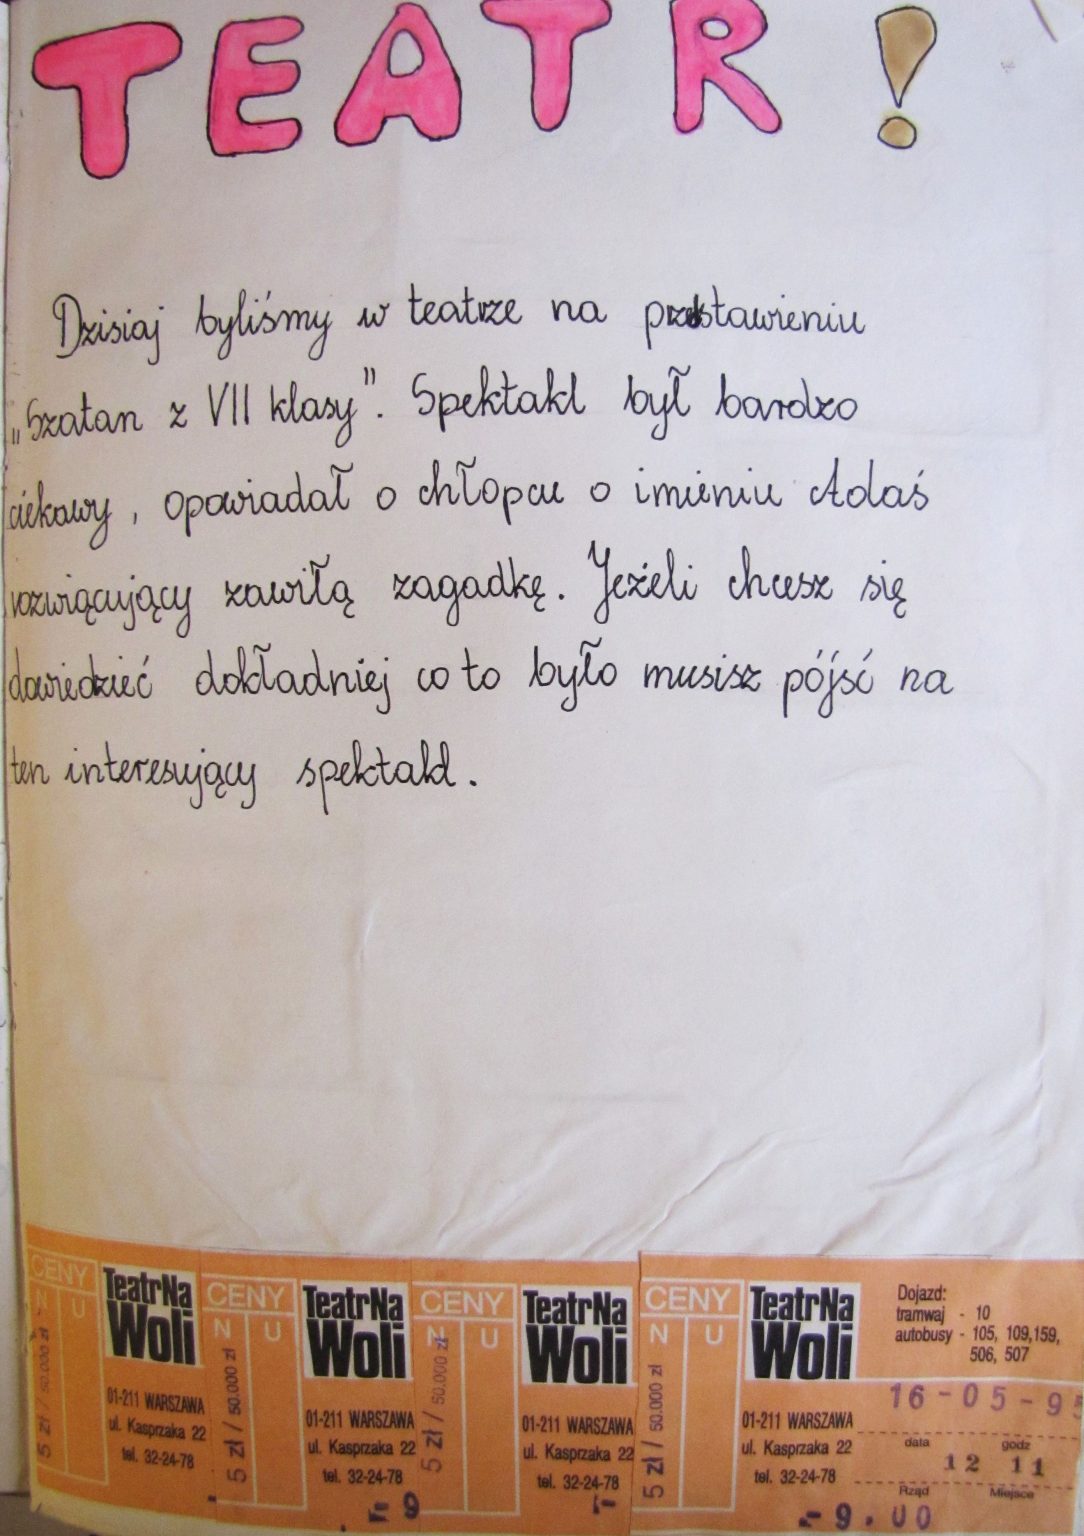 TEATR!
Dzisiaj byliśmy w teatrze na przedstawieniu
„Szatan z VII klasy". Spektakl był bardzo
ciekawy, opowiadał o chłopcu o imieniu Adaś
rozwiązujący zawiłą zagadkę. Jeżeli chcesz się
dowiedzieć dokładniej co to było musisz pójść na
ten interesujący spektakl.
CENY
N U
5 zł / 50.000 zł
TeatrNa
Woli
01-211 WARSZAWA
ul. Kasprzaka 22
tel. 32-24-78
CENY
N U
5 zł / 50.000 zł
TeatrNa
Woli
01-211 WARSZAWA
ul. Kasprzaka 22
tel. 32-24-78
CENY
N U
5 zł / 50.000 zł
TeatrNa
Woli
01-211 WARSZAWA
ul. Kasprzaka 22
tel. 32-24-78
CENY
N U
5 zł / 50.000 zł
TeatrNa
Woli
01-211 WARSZAWA
ul. Kasprzaka 22
tel. 32-24-78
Dojazd:
tramwaj - 10
autobusy - 105, 109,159,
506, 507
16-05-95
data godz
12 11
Rząd Miejsce
9.00